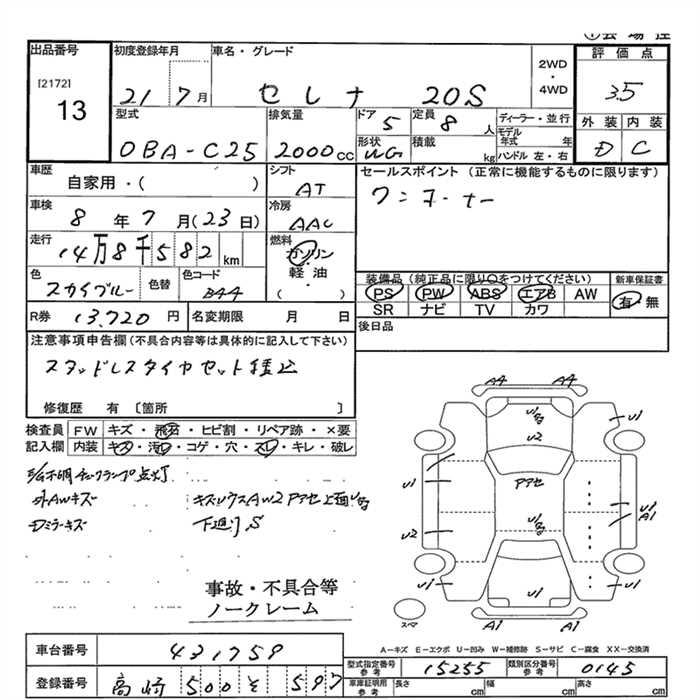 ①会場控
出品番号
[2172]
13
初度登録年月
21 7月
車名・グレード
セレナ 20S
2WD・4WD
評価点
3.5
外装 内装
D C
型式
DBA-C25
排気量
2000CC
ドア 5
定員 8人
形状 WG
積載 kg
ディーラー・並行
モデル年式 年
ハンドル 左・右
車歴
自家用・( )
シフト
AT
セールスポイント(正常に機能するものに限ります)
ワンオーナー
車検
8年7月(23日)
冷房
AAC
走行
14万8千582km
燃料
ガソリン・軽油・( )
色
スカイブルー
色替
色コード
B44
装備品(純正品に限り○をつけてください)
PS PW ABS エアB AW
SR ナビ TV カワ
新車保証書
有・無
R券 13,720円
名変期限 月 日
後日品
注意事項申告欄(不具合内容等は具体的に記入して下さい)
スタッドレスタイヤセット積込
修復歴 有 〔箇所 〕
検査員記入欄
FW キズ・飛石・ヒビ割・リペア跡・×要
内装 キズ・汚れ・コゲ・穴・スレ・キレ・破レ
E/G不調チェックランプ点灯
外AWキズ
キズ小凹スAW2アアセ上面U多
Dミラーキズ
下廻りS
事故・不具合等
ノークレーム
A4 A4
U多
U2
U1
アアセ
U1
U多
U2
U2
A1
U1
U1
U1
A1 A1
スマ
A-キズ E-エクボ U-凹み W-補修跡 S-サビ C-腐食 XX-交換済
車台番号
431759
登録番号
高崎 500 そ 597
型式指定番号参考
15255
類別区分番号参考
0145
車庫証明用参考
長さ cm 幅 cm 高さ cm